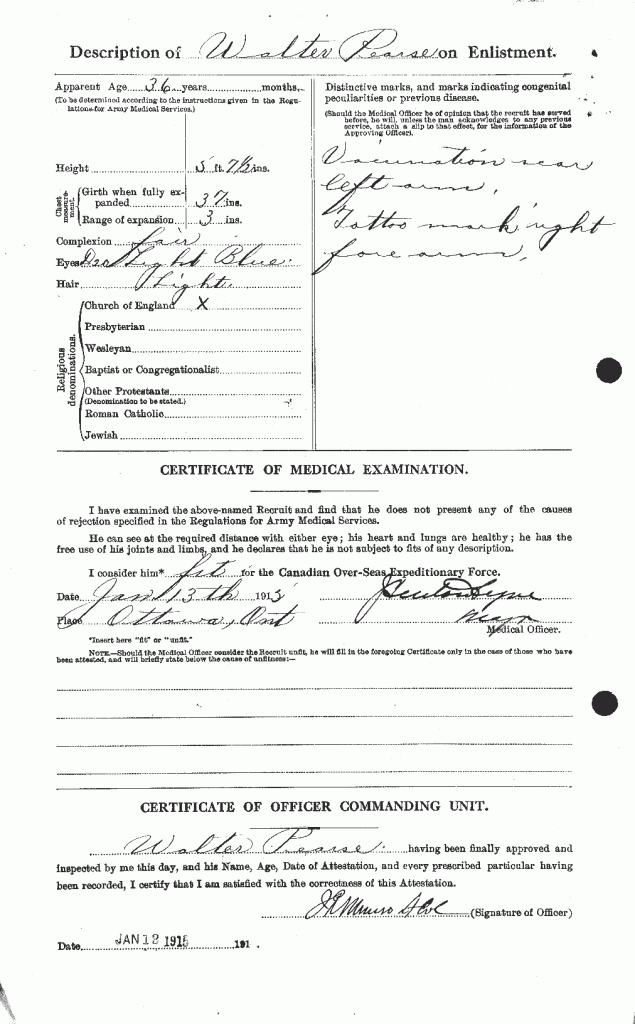 Description of Walter Pearse on Enlistment.
Apparent Age 36 years months.
(To be determined according to the instructions given in the Regu-
lations for Army Medical Services.)
Height 5 ft. 7½ ins.
Chest measure-ment.
Girth when fully ex-
panded 37 ins.
Range of expansion 3 ins.
Complexion fair
Eyes Light Blue.
Hair Light.
Religious denominations.
Church of England X
Presbyterian
Wesleyan
Baptist or Congregationalist
Other Protestants
(Denomination to be stated.)
Roman Catholic
Jewish
Distinctive marks, and marks indicating congenital
peculiarities or previous disease.
(Should the Medical Officer be of opinion that the recruit has served
before, he will, unless the man acknowledges to any previous
service, attach a slip to that effect, for the information of the
Approving Officer).
Vacination scar
left arm.
Tattoo mark right
fore arm.
CERTIFICATE OF MEDICAL EXAMINATION.
I have examined the above-named Recruit and find that he does not present any of the causes
of rejection specified in the Regulations for Army Medical Services.
He can see at the required distance with either eye; his heart and lungs are healthy; he has the
free use of his joints and limbs, and he declares that he is not subject to fits of any description.
I consider him* fit for the Canadian Over-Seas Expeditionary Force.
Date Jan 13th 1915
Place Ottawa, Ont
Medical Officer.
*Insert here "fit" or "unfit."
NOTE.—Should the Medical Officer consider the Recruit unfit, he will fill in the foregoing Certificate only in the case of those who have
been attested, and will briefly state below the cause of unfitness:—
CERTIFICATE OF OFFICER COMMANDING UNIT.
Walter Pearse. having been finally approved and
inspected by me this day, and his Name, Age, Date of Attestation, and every prescribed particular having
been recorded, I certify that I am satisfied with the correctness of this Attestation.
Munro (Signature of Officer)
Date JAN 13 1915 191 .